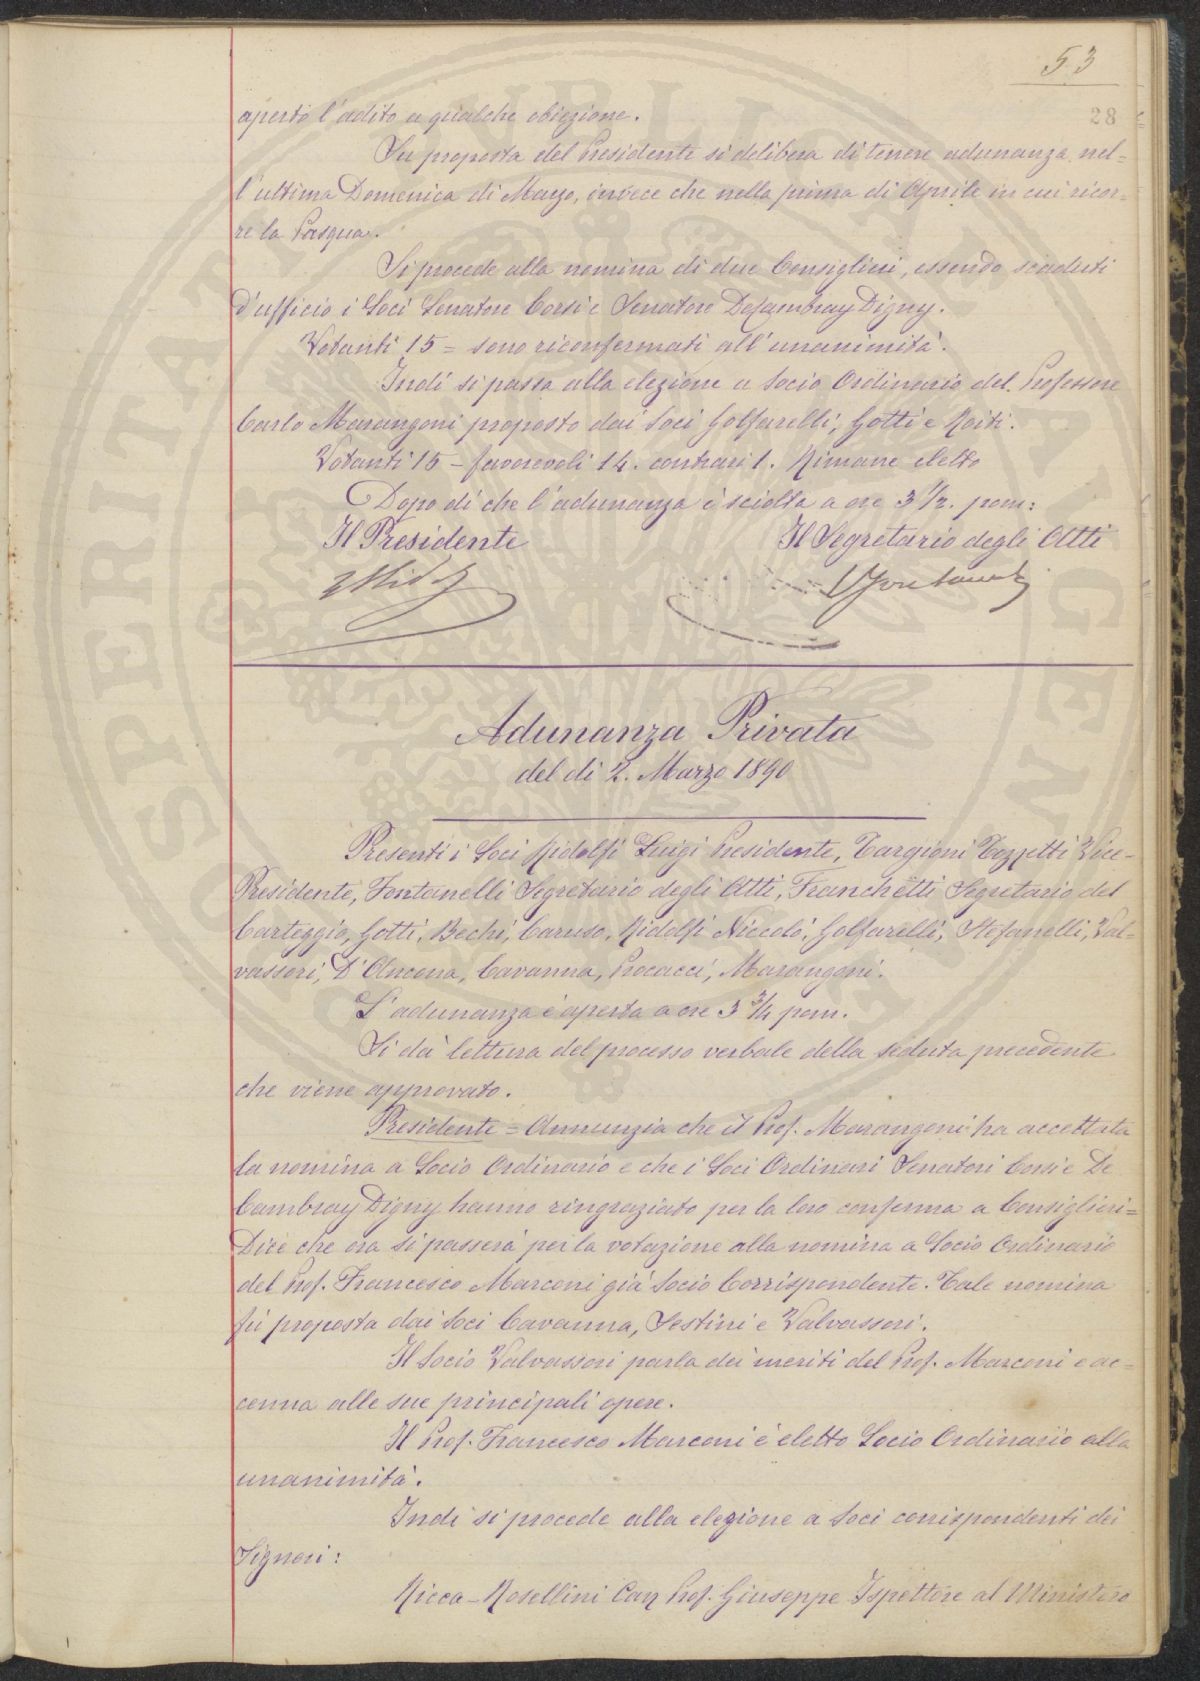 53
28
aperto l'adito a qualche obiezione.
Su proposta del Presidente si delibera di tenere adunanza nel=
l'ultima Domenica di Marzo, invece che nella prima di Aprile in cui ricor=
re la Pasqua.
Si procede alla nomina di due Consiglieri, essendo scaduti
d'ufficio i Soci Senatore Corsi e Senatore De Cambray Digny.
Votanti 15 = sono riconfermati all'unanimità.
Indi si passa alla elezione a Socio Ordinario del Professore
Carlo Marangoni proposto dai Soci Golfarelli, Gotti e Roiti.
Votanti 15 - favorevoli 14. contrari 1. Rimane eletto
Dopo di che l'adunanza è sciolta a ore 3 1/2. pom:
Il Presidente Il Segretario degli Atti
LRidolfi Fontanelli
Adunanza Privata
del dì 2. Marzo 1890
Presenti i Soci Ridolfi Luigi Presidente, Targioni Tozzetti Vice-
Presidente, Fontanelli Segretario degli Atti, Franchetti Segretario del
Carteggio, Gotti, Bechi, Caruso, Ridolfi Niccolò, Golfarelli, Stefanelli, Val=
vassori, D'Ancona, Cavanna, Procacci, Marangoni.
L'adunanza è aperta a ore 3 3/4 pom.
Si dà lettura del processo verbale della seduta precedente
che viene approvato.
Presidente = Annunzia che il Prof. Marangoni ha accettata
la nomina a Socio Ordinario e che i Soci Ordinari Senatori Corsi e De
Cambray Digny hanno ringraziato per la loro conferma a Consiglieri=
Dice che ora si passerà per la votazione alla nomina a Socio Ordinario
del Prof. Francesco Marconi già Socio Corrispondente. Tale nomina
fu proposta dai Soci Cavanna, Sestini e Valvassori.
Il Socio Valvassori parla dei meriti del Prof. Marconi e ac=
cenna alle sue principali opere.
Il Prof. Francesco Marconi è eletto Socio Ordinario alla
unanimità.
Indi si procede alla elezione a Soci corrispondenti dei
Signori:
Ricca-Rosellini Cav Prof. Giuseppe Ispettore al Ministero